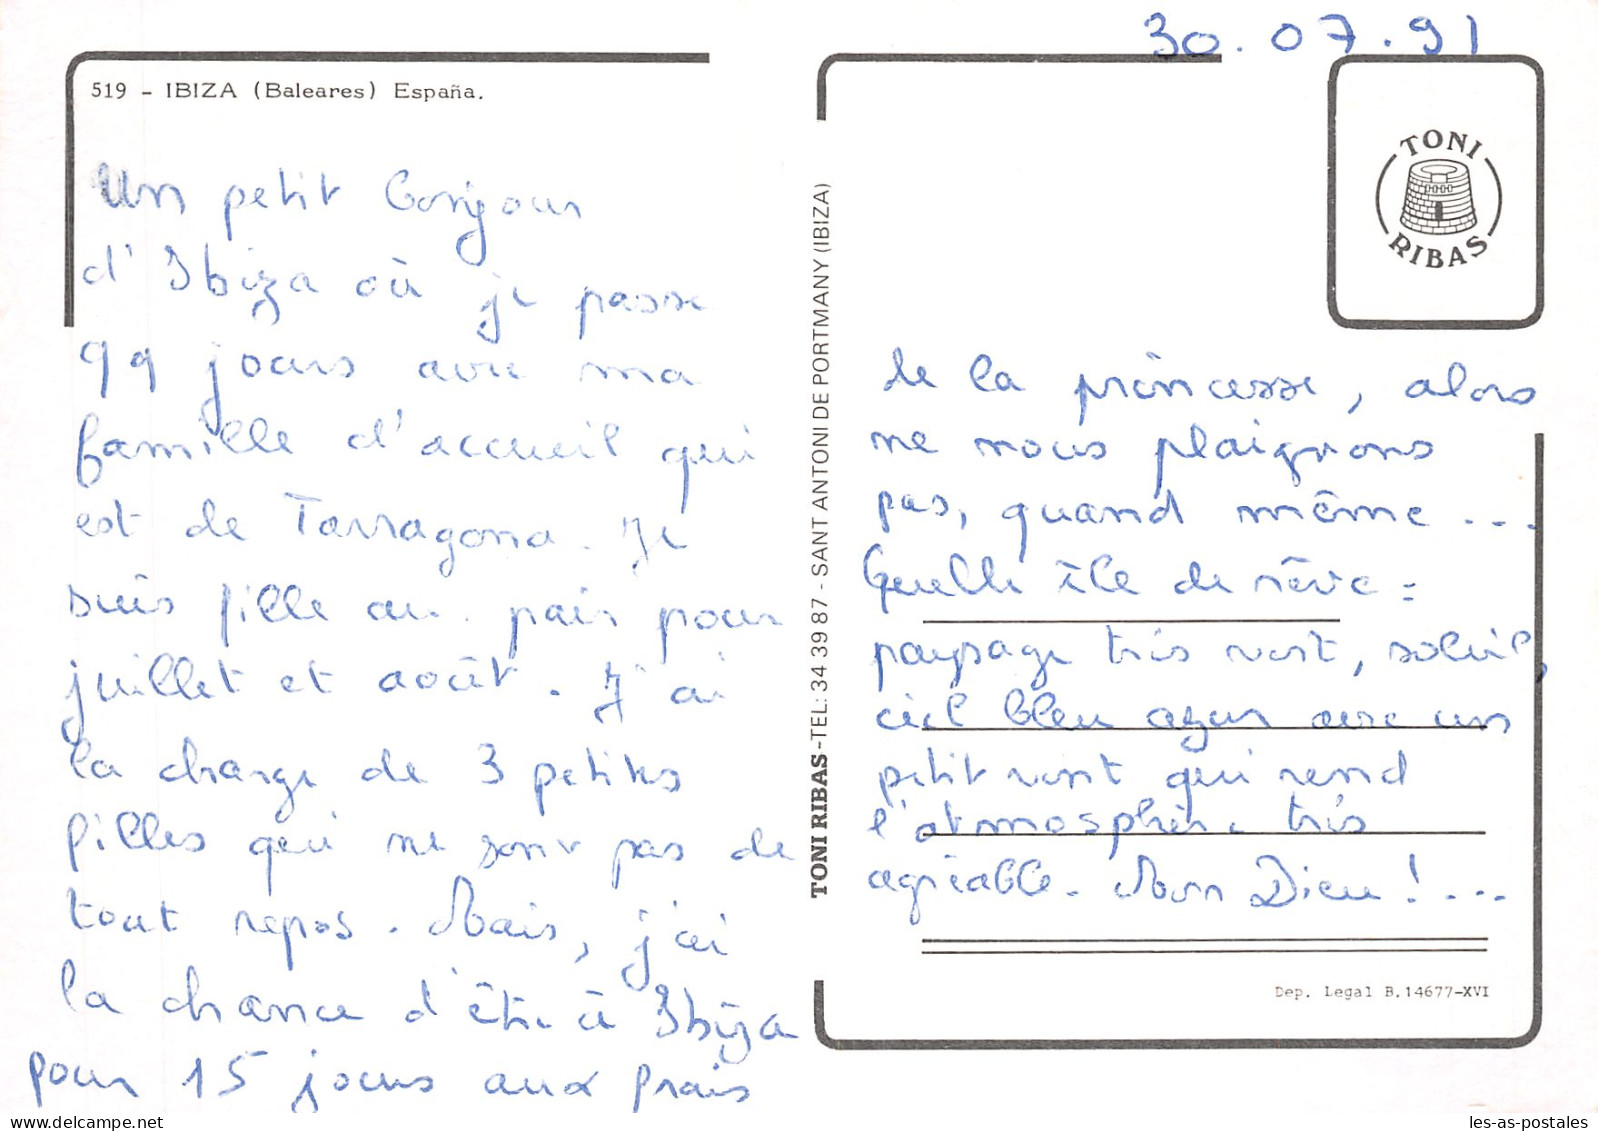 30.07.91
519 - IBIZA (Baleares) España.
TONI
RIBAS
Un petit bonjour
d'Ibiza où je passe
qq jours avec ma
famille d'accueil qui
est de Tarragona. Je
suis fille au pair pour
juillet et août. J'ai
la charge de 3 petites
filles qui ne sont pas de
tout repos. Mais, j'ai
la chance d'être à Ibiza
pour 15 jours aux frais
TONI RIBAS - TEL: 34 39 87 - SANT ANTONI DE PORTMANY (IBIZA)
de la princesse, alors
ne nous plaignons
pas, quand même ...
Quelle île de rêve :
paysage très vert, soleil,
ciel bleu azur avec un
petit vent qui rend
l'atmosphère très
agréable. Mon Dieu ! ...
Dep. Legal B.14677-XVI
les-as-postales